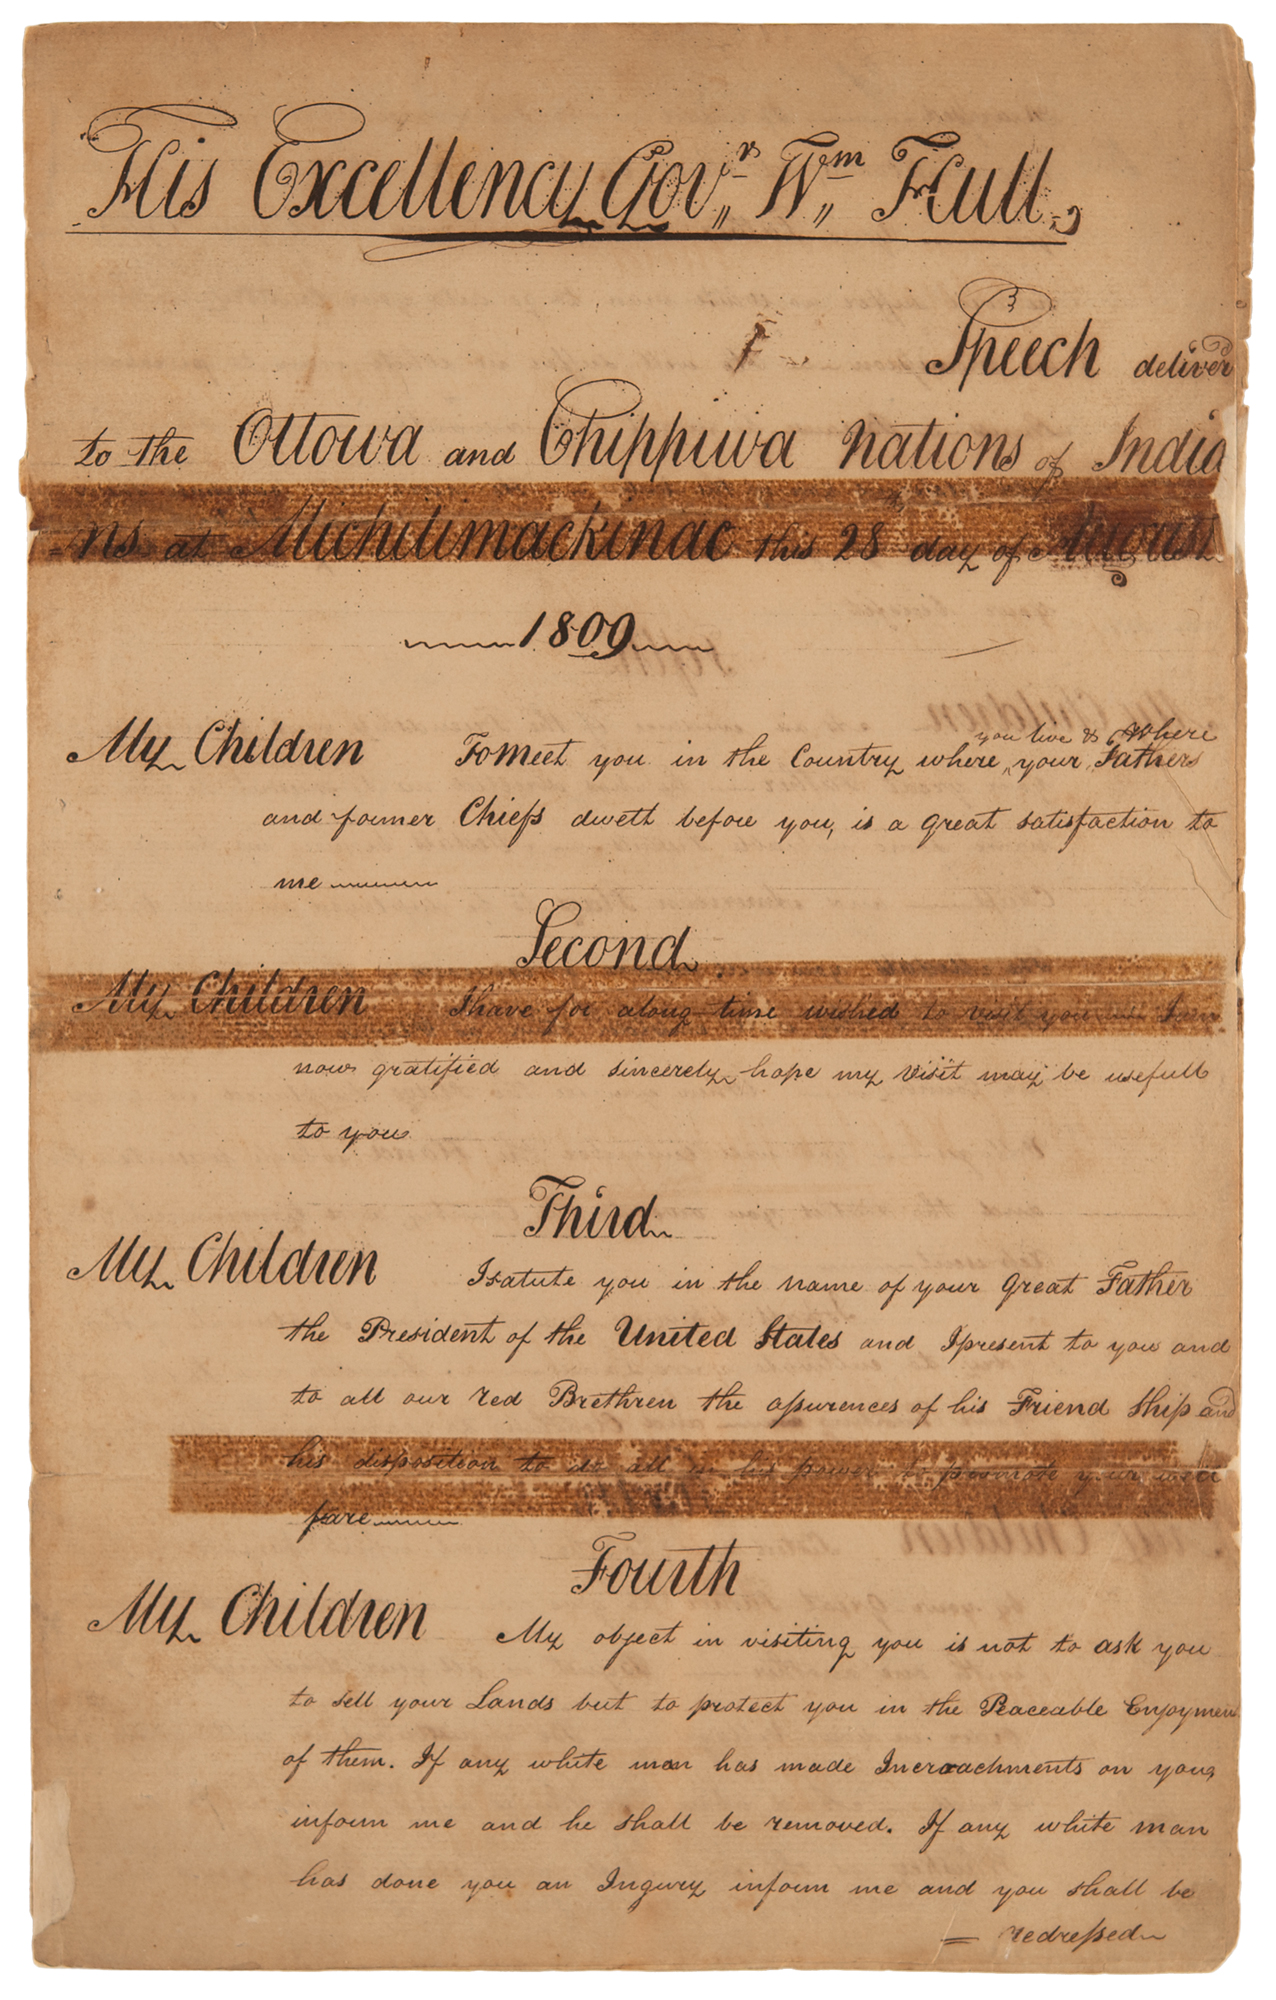 His Excellency Gov,,r Wm,, Hull,
Speech deliver'd
to the Ottowa and Chippiwa Nations of India
=ns at Michilimackinac this 28th day of August
1809
My Children To Meet you in the Country where you live & Where your Fathers
and former Chiefs dwelt before you, is a great satisfaction to
me
Second
My Children I have for along time wished to visit you I am
now gratified and sincerely hope my Visit may be usefull
to you
Third
My Children I salute you in the name of your Great Father
the President of the United States and I present to you and
to all our red Brethren the assurences of his Friend ship and
his disposition to do all in his power to promote your well
fare
Fourth
My Children My object in visiting you is not to ask you
to sell your Lands but to protect you in the Peaceable Enjoymen
of them. If any white man has made Incroachments on you,
inform me and he shall be removed. If any white man
has done you an Ingury inform me and you shall be
= redressed